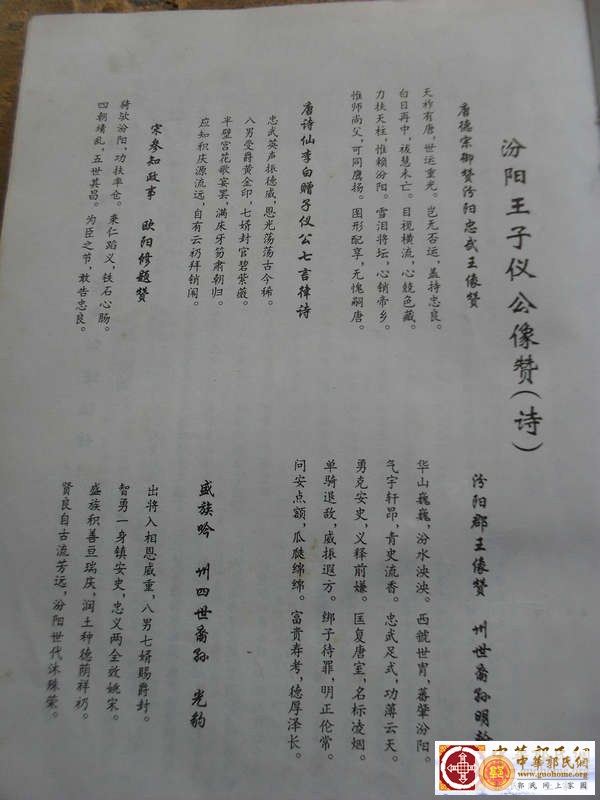 汾阳王子仪公像赞(诗)
唐德宗御赞汾阳忠武王像赞
天祚有唐，世运重光。岂无否运，盖持忠良。
白日再中，祓慧未亡。目视横流，心兢色藏。
力扶天柱，惟赖汾阳。雪泪将坛，心销帝乡。
惟师尚父，可同鹰扬。图形配享，无愧嗣唐。
唐诗仙李白赠子仪公七言律诗
忠武英声振德威，恩光荡荡古今稀。
八男受爵黄金印，七婿封官碧紫薇。
半壁宫花歌宴罢，满床牙笏肃朝归。
应知积庆源流远，自有云礽拜锁闱。
宋参知政事 欧阳修题赞
猗欤汾阳，功扶率仓。秉仁蹈义，铁石心肠。
四朝靖乱，五世其昌。为臣之节，敢告忠良。
汾阳郡王像赞 卅世裔孙明
华山巍巍，汾水泱泱。西虢世胄，蕃肇汾阳。
气宇轩昂，青史流香。忠武足式，功薄云天。
勇克安史，义释前嫌。匡复唐室，名标凌烟。
单骑退敌，威振遐方。绑子待罪，明正伦常。
问安点额，瓜瓞绵绵。富贵寿考，德厚泽长。
盛族吟 卅四世裔孙 光豹
出将入相恩威重，八男七婿赐爵封。
智勇一身镇安史，忠义两全效姚宋。
盛族积善豆瑞庆，润土种德荫祥礽。
贤良自古流芳远，汾阳世代沐殊荣。
中華郭氏網
www.guohome.org
郭氏网上家园